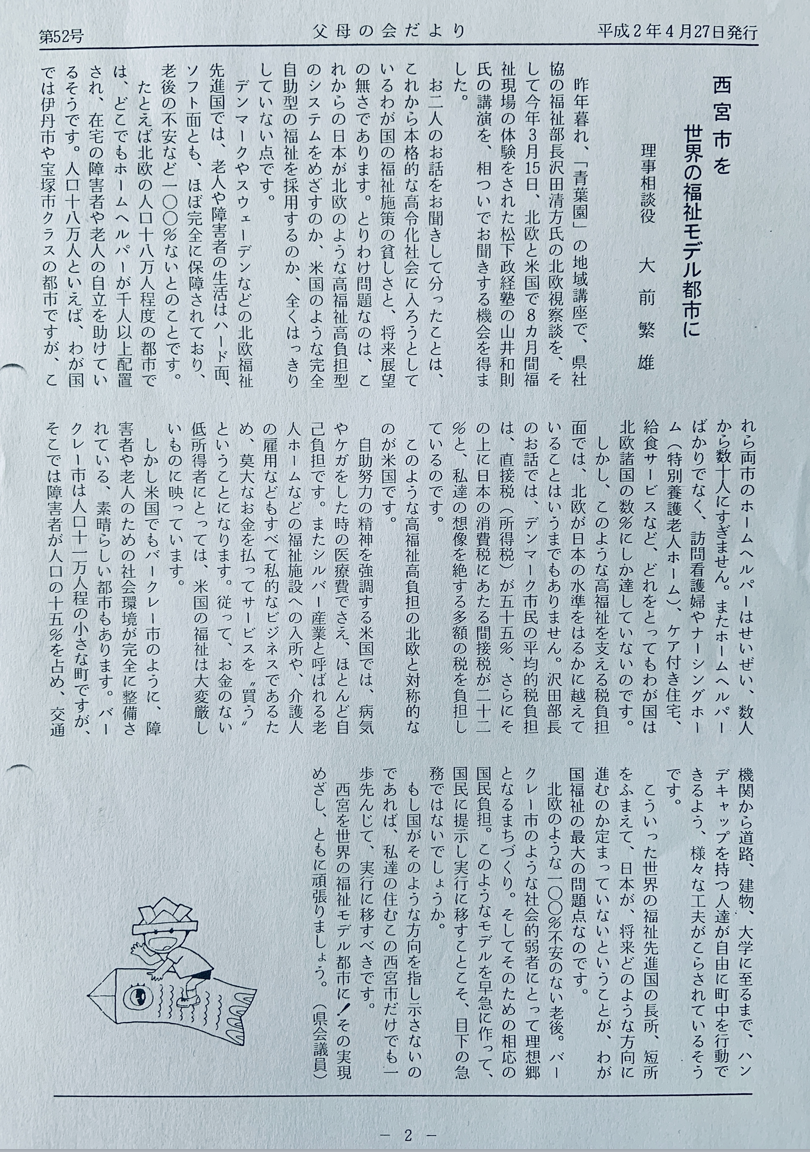 第52号
父母の会だより
平成2年4月27日発行
西宮市を
世界の福祉モデル都市に
理事相談役　大前繁雄
昨年暮れ、「青葉園」の地域講座で、県社
協の福祉部長沢田清方氏の北欧視察談を、そ
して今年3月15日、北欧と米国で8カ月間福
祉現場の体験をされた松下政経塾の山井和則
氏の講演を、相ついでお聞きする機会を得ま
した。
お二人のお話をお聞きして分ったことは、
これから本格的な高令化社会に入ろうとして
いるわが国の福祉施策の貧しさと、将来展望
の無さであります。とりわけ問題なのは、こ
れからの日本が北欧のような高福祉高負担型
のシステムをめざすのか、米国のような完全
自助型の福祉を採用するのか、全くはっきり
していない点です。
デンマークやスウェーデンなどの北欧福祉
先進国では、老人や障害者の生活はハード面、
ソフト面とも、ほぼ完全に保障されており、
老後の不安など一〇〇%ないとのことです。
たとえば北欧の人口十八万人程度の都市で
は、どこでもホームヘルパーが千人以上配置
され、在宅の障害者や老人の自立を助けてい
るそうです。人口十八万人といえば、わが国
では伊丹市や宝塚市クラスの都市ですが、こ
れら両市のホームヘルパーはせいぜい、数人
から数十人にすぎません。またホームヘルパー
ばかりでなく、訪問看護婦やナーシングホー
ム（特別養護老人ホーム）、ケア付き住宅、
給食サービスなど、どれをとってもわが国は
北欧諸国の数%にしか達していないのです。
しかし、このような高福祉を支える税負担
面では、北欧が日本の水準をはるかに越えて
いることはいうまでもありません。沢田部長
のお話では、デンマーク市民の平均的税負担
は、直接税（所得税）が五十五%、さらにそ
の上に日本の消費税にあたる間接税が二十二
%と、私達の想像を絶する多額の税を負担し
ているのです。
このような高福祉高負担の北欧と対称的な
のが米国です。
自助努力の精神を強調する米国では、病気
やケガをした時の医療費でさえ、ほとんど自
己負担です。またシルバー産業と呼ばれる老
人ホームなどの福祉施設への入所や、介護人
の雇用などもすべて私的なビジネスであるた
め、莫大なお金を払ってサービスを〝買う〟
ということになります。従って、お金のない
低所得者にとっては、米国の福祉は大変厳し
いものに映っています。
しかし米国でもバークレー市のように、障
害者や老人のための社会環境が完全に整備さ
れている、素晴らしい都市もあります。バー
クレー市は人口十一万人程の小さな町ですが、
そこでは障害者が人口の十五%を占め、交通
機関から道路、建物、大学に至るまで、ハン
デキャップを持つ人達が自由に町中を行動で
きるよう、様々な工夫がこらされているそう
です。
こういった世界の福祉先進国の長所、短所
をふまえて、日本が、将来どのような方向に
進むのか定まっていないということが、わが
国福祉の最大の問題点なのです。
北欧のような一〇〇%不安のない老後。バー
クレー市のような社会的弱者にとって理想郷
となるまちづくり。そしてそのための相応の
国民負担。このようなモデルを早急に作って、
国民に提示し実行に移すことこそ、目下の急
務ではないでしょうか。
もし国がそのような方向を指し示さないの
であれば、私達の住むこの西宮市だけでも一
歩先んじて、実行に移すべきです。
西宮を世界の福祉モデル都市に！その実現
めざし、ともに頑張りましょう。（県会議員）
－ 2 －